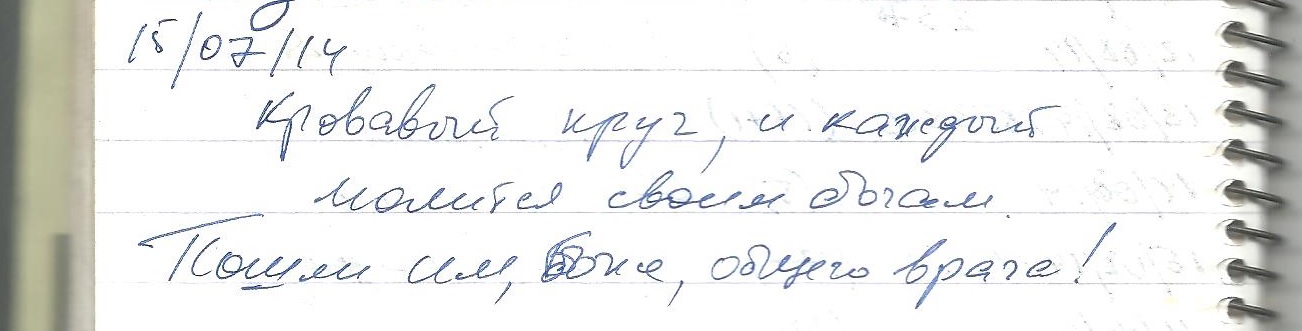 15/07/14
Кровавый круг, и каждый
молится своим богам.
Пошли им, Боже, общего врача!